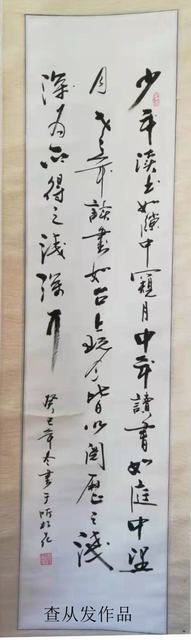 少年读书如隙中窥月中年读书如庭中望
月老年读书如台上玩月皆以阅历之浅
深为所得之浅深耳
癸巳年冬书于
查从发作品